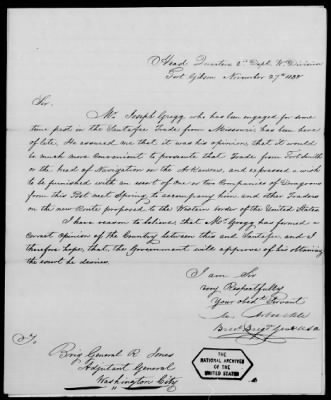 Head Quarters 2d Dept. Wn Division
Fort Gibson November 27th 1838
Sir.
Mr. Joseph Gregg who has been engaged for some
time past in the Santafee Trade from Missouri has been here
of late. He assured me that it was his opinion, that it would
be much more convenient to prosecute that Trade from Fort Smith
or the head of Navigation on the Arkansas, and expressed a wish
to be furnished with an escort of One or two Companies of Dragoons
from this Post next Spring to accompany him and other Traders
on the new Route proposed to the Western border of the United States
I have reason to believe, that Mr. Gregg has formed a
correct opinion of the Country between this and Santafee and I
therefore hope, that, the Government will approve of his obtaining
the escort he desires.
I am Sir
very Respectfully
Your Obdt. Servant
M. Arbuckle
Brevt Brigr Genl USA
To,
Brig General R. Jones
Adjutant General
Washington City
THE
NATIONAL ARCHIVES
OF THE
UNITED STATES